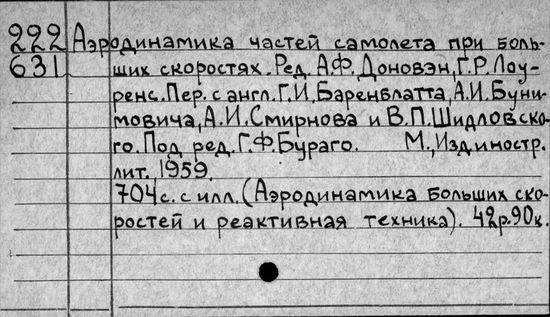 222 Аэродинамика частей самолета при боль-
631 ших скоростях. Ред. А.Ф. Доновэн, Г.Р. Лоу-
ренс. Пер. с англ. Г.И. Баренблатта, А.И. Буни-
мовича, А.И. Смирнова и В.П. Шидловско-
го. Под ред. Г.Ф. Бураго. М., Изд. иностр.
лит. 1959.
704 с. с илл. (Аэродинамика больших ско-
ростей и реактивная техника). 42р. 90к.